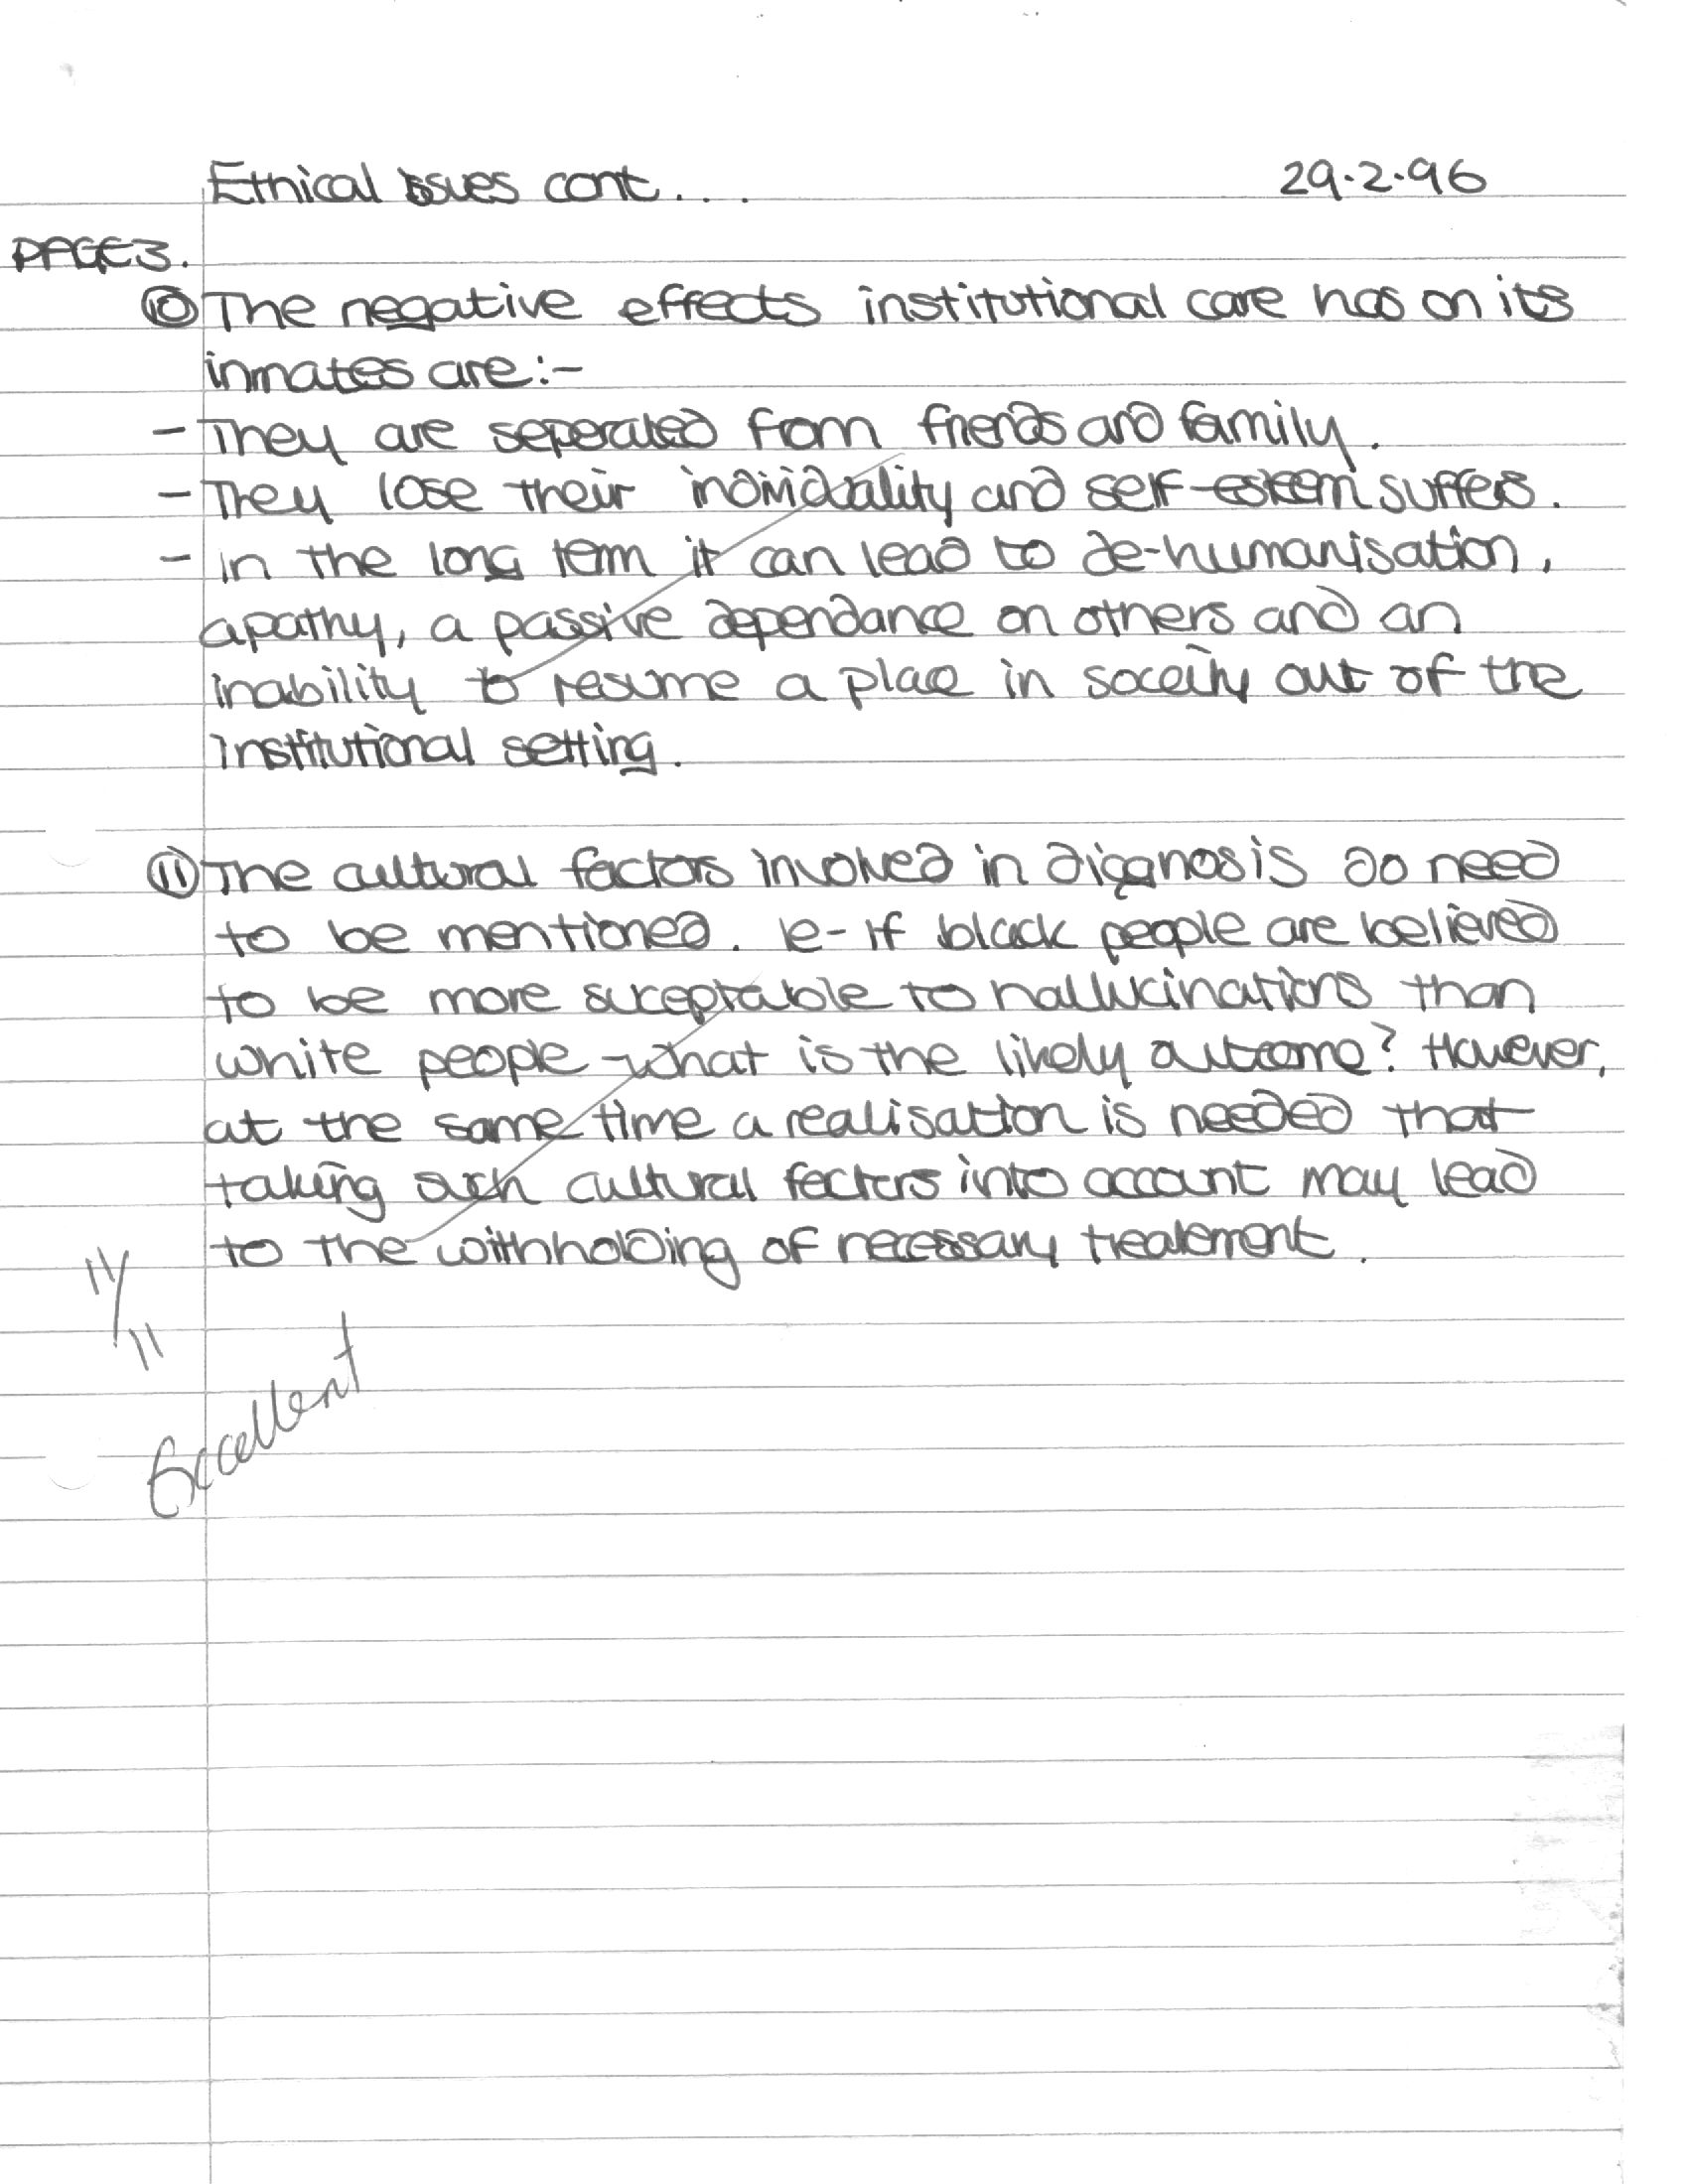 Ethical issues cont... 29.2.96
PAGE 3.
⑩ The negative effects institutional care has on its
inmates are:-
- They are seperated from friends and family.
- They lose their individuality and self-esteem suffers.
- in the long term it can lead to de-humanisation,
apathy, a passive dependance on others and an
inability to resume a place in soceity out of the
institutional setting.
⑪ The cultural factors involved in diganosis do need
to be mentioned. ie- if black people are believed
to be more suceptable to hallucinations than
white people - what is the likely outcome? However,
at the same time a realisation is needed that
taking such cultural factors into account may lead
to the withholding of necessary treatement.
11/11
Excellent